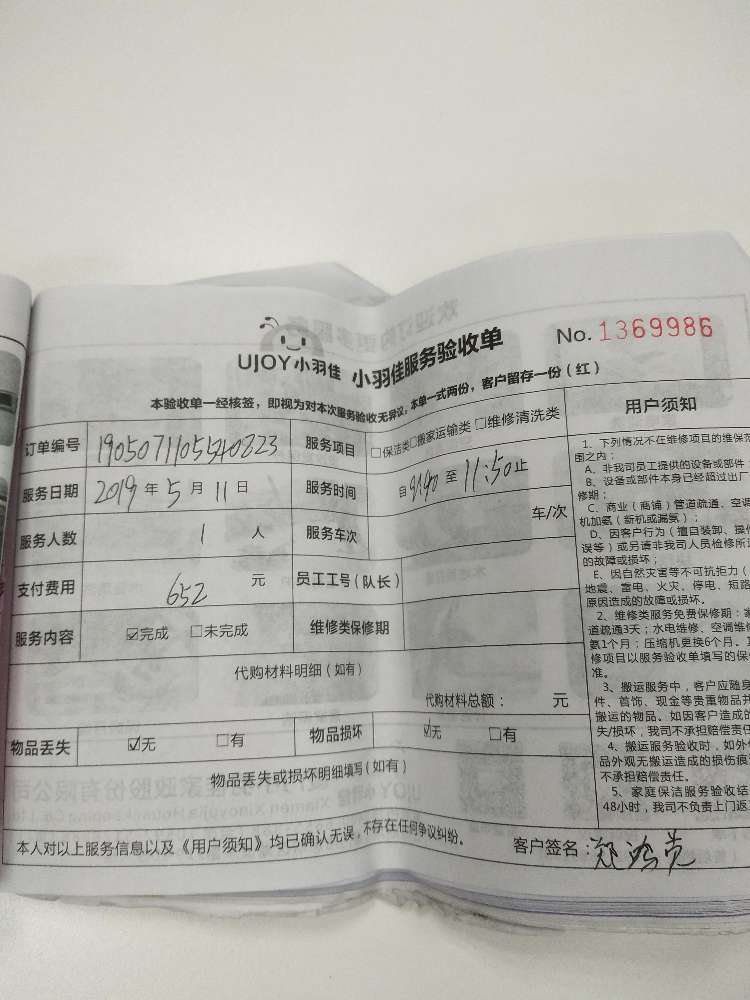 UJOY小羽佳 小羽佳服务验收单 No. 1369986
本验收单一经核签，即视为对本次服务验收无异议，本单一式两份，客户留存一份（红）
订单编号 服务项目 □保洁类□搬家运输类 □维修清洗类
服务日期 2019 年 5 月 11 日 服务时间 自 至 11:50 止
服务人数 1 人 服务车次 车/次
支付费用 652 元 员工工号（队长）
服务内容 ☑完成 □未完成 维修类保修期
代购材料明细（如有）
代购材料总额： 元
物品丢失 ☑无 □有 物品损坏 ☑无 □有
物品丢失或损坏明细填写（如有）
本人对以上服务信息以及《用户须知》均已确认无误，不存在任何争议纠纷。 客户签名：
用户须知
1、下列情况不在维修项目的维保范
围之内：
A、非我司员工提供的设备或部件
B、设备或部件本身已经超过出厂
修期；
C、商业（商铺）管道疏通、空调
机加氨（新机或漏氨）；
D、因客户行为（擅自装卸、操作
误等）或另请非我司人员检修所造
的故障或损坏；
E、因自然灾害等不可抗拒力（
地震、雷电、火灾、停电、短路
原因造成的故障或损坏。
2、维修类服务免费保修期：家
道疏通3天；水电维修、空调维修
氨1个月；压缩机更换6个月。其
修项目以服务验收单填写的保
准。
3、搬运服务中，客户应随身
件、首饰、现金等贵重物品并
搬运的物品。如因客户造成的
失/损坏，我司不承担赔偿责任
4、搬运服务验收时，如外包
品外观无搬运造成的损伤痕
不承担赔偿责任。
5、家庭保洁服务验收结
48小时，我司不负责上门返